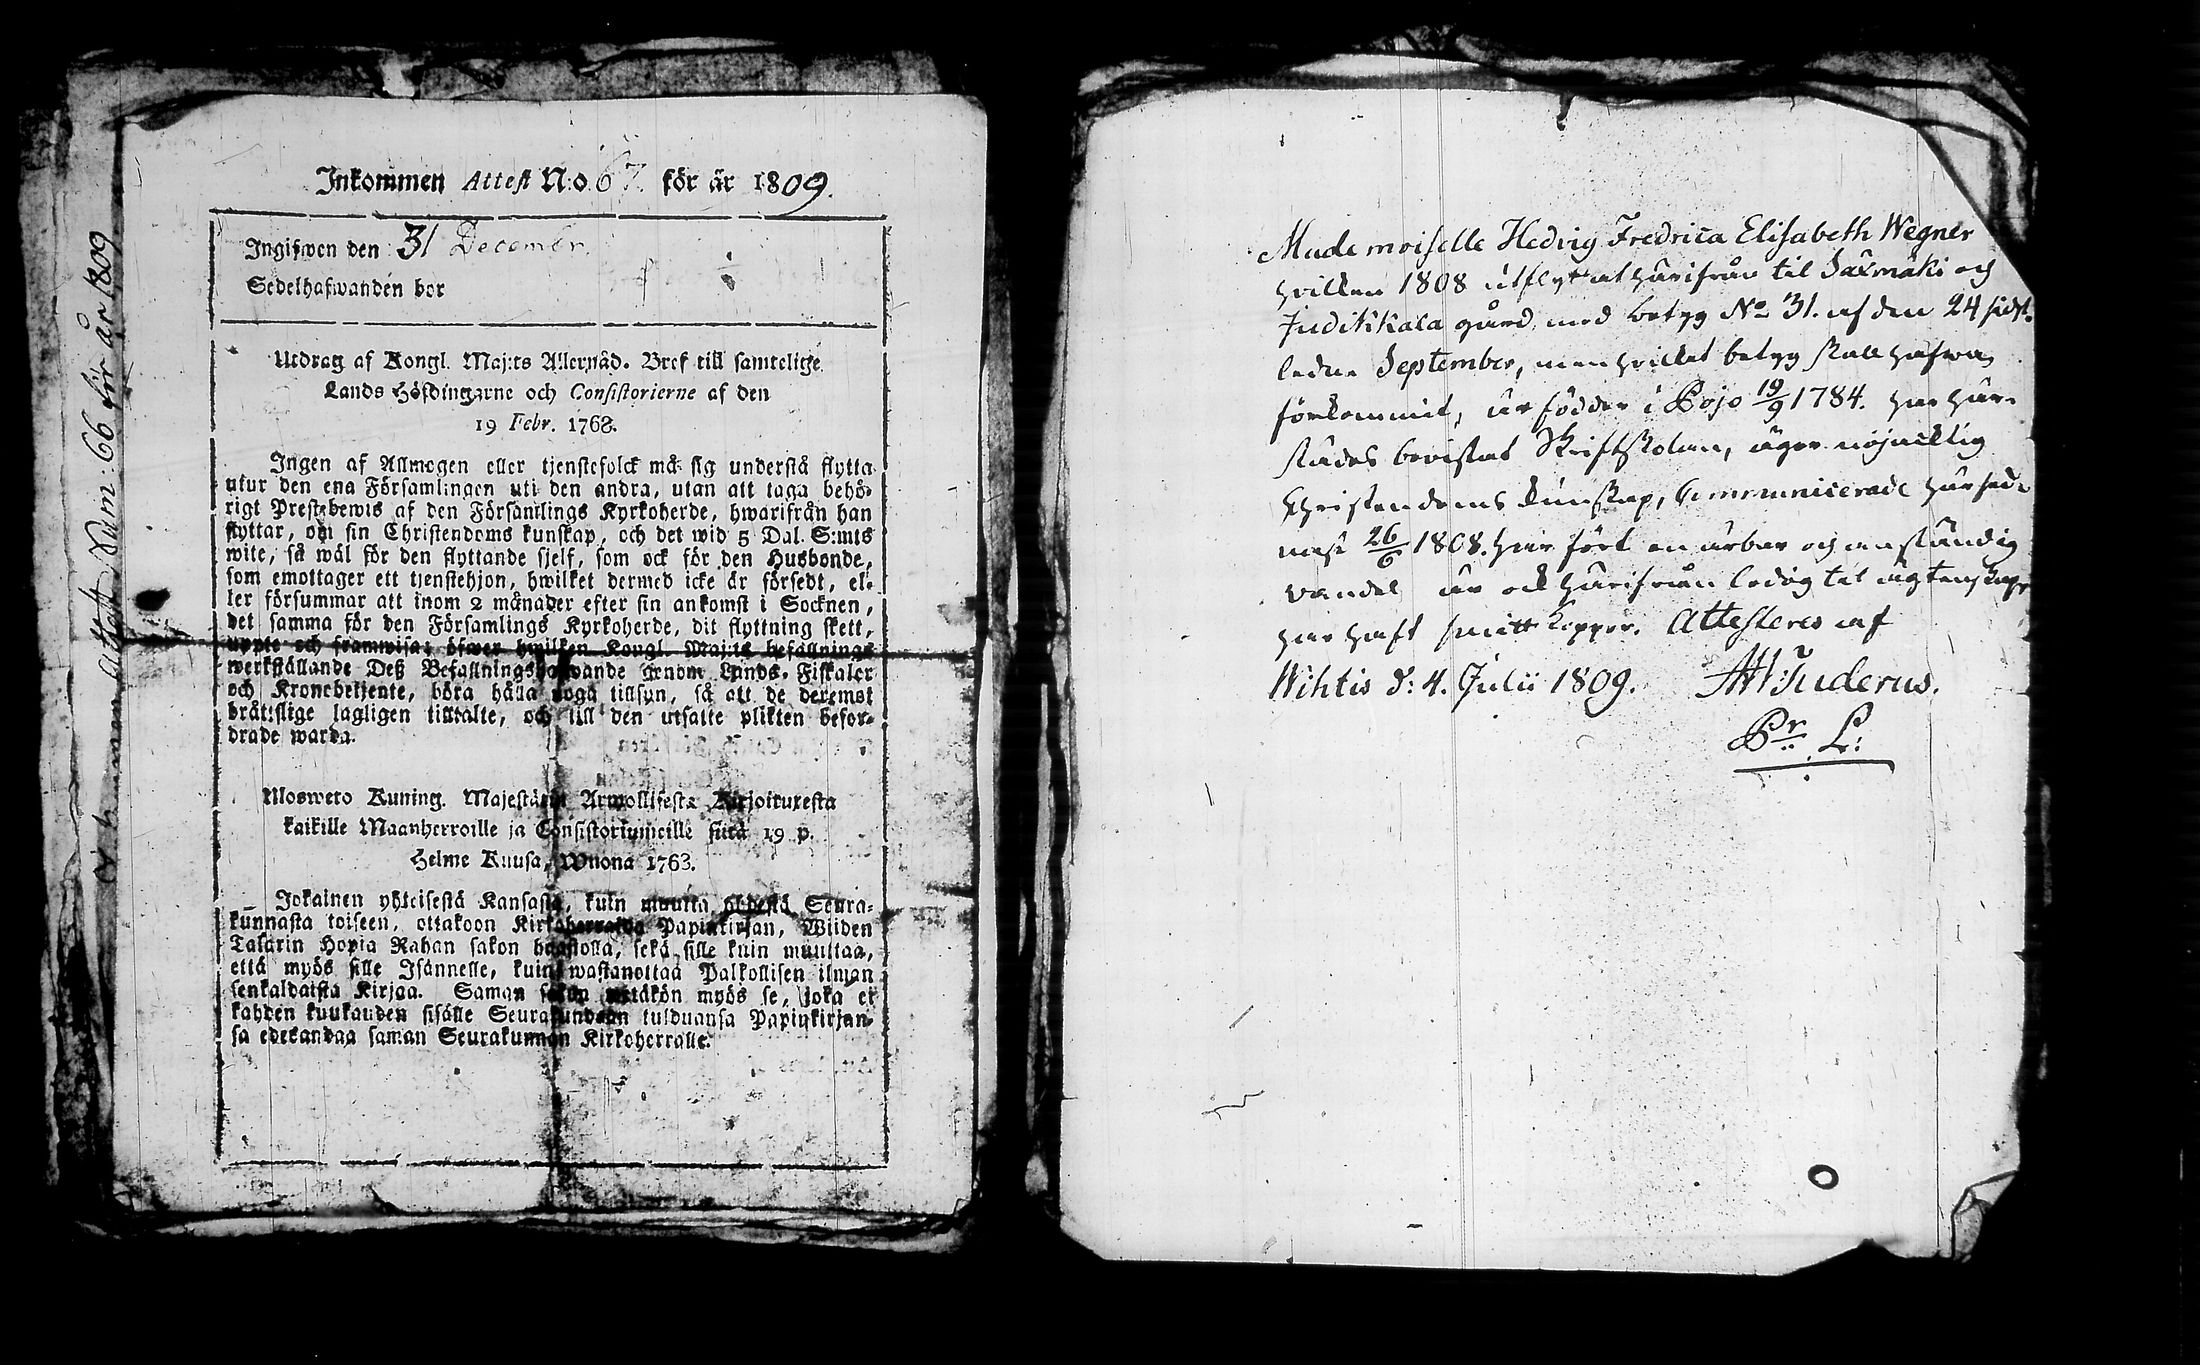 Inkommen Attest N:o 67. för år 1809.
Ingifwen den 31 Decembr.
Sedelhafwanden bor
Utdrag af Kongl. Maj:ts Allernåd. Bref till samtelige
Lands Höfdingarne och Consistorierne af den
19 Febr. 1763.
Ingen af Allmogen eller tjenstefolck må sig understå flytta
utur den ena Församlingen uti den andra, utan att taga behö-
rigt Prestebewis af den Församlings Kyrkoherde, hwarifrån han
flyttar, om sin Christendoms kunskap, och det wid 5 Dal. S:mts
wite, så wäl för den flyttande sjelf, som ock för den Husbonde,
som emottager ett tjenstehjon, hwilket dermed icke är försedt, el-
ler försummar att inom 2 månader efter sin ankomst i Socknen,
det samma för den Församlings Kyrkoherde, dit flyttning skett,
uppte och framwisa; öfwer hwilken Kongl. Maj:ts befallnings
werkställande Deß Befallningshafwande genom Lands-Fiskaler
och Kronebetjente, böra hålla noga tillsyn, så att de deremot
bråtslige lagligen tilltalte, och till den utsatte plikten befor-
drade warda.
Ulosweto Kuning. Majestätin Armollisesta Kirjoituxesta
kaikille Maanherroille ja Consistoriumeille siitä 19 p.
Helme Kuusa, Wuona 1763.
Jokainen yhteisestä Kansasta, kuin muutta yhdestä Seura-
kunnasta toiseen, ottakoon Kirkoherralda Papinkirjan, Wiiden
Talarin Hopia Rahan sakon haastolla, sekä sille kuin muuttaa,
että myös sille Isännelle, kuin wastanottaa Palkollisen ilman
senkaldaista Kirjaa. Saman sakon wetäkön myös se, joka ei
kahden kuukauden sisälle Seurakundaan tulduansa Papinkirjan-
sa edeskandaa saman Seurakunnan Kirkoherralle.
attest Num: 66 för år 1809
Mademoiselle Hedvig Fredrica Elisabeth Wegner
hvilken 1808 utflyttat härifrån til Saxmäki och
Juditkkala gård med betyg No 31. af den 24 sidst-
ledne September, men hvilket betyg skall hafwa
förkommit, är födder i Pojo 19/9 1784. har här-
städes bevistat Skriftskolan, äger nöjacktig
Christendoms kunskap, Communicerade här sed-
nast 26/6 1808. har fört en ärbar och anständig
vandel är ock härifrån ledig til ägtenskap
har haft smitt Koppor. Attesteres af
Wihtis d: 4. Julii 1809. AW:Tuderus.
Pr. L: